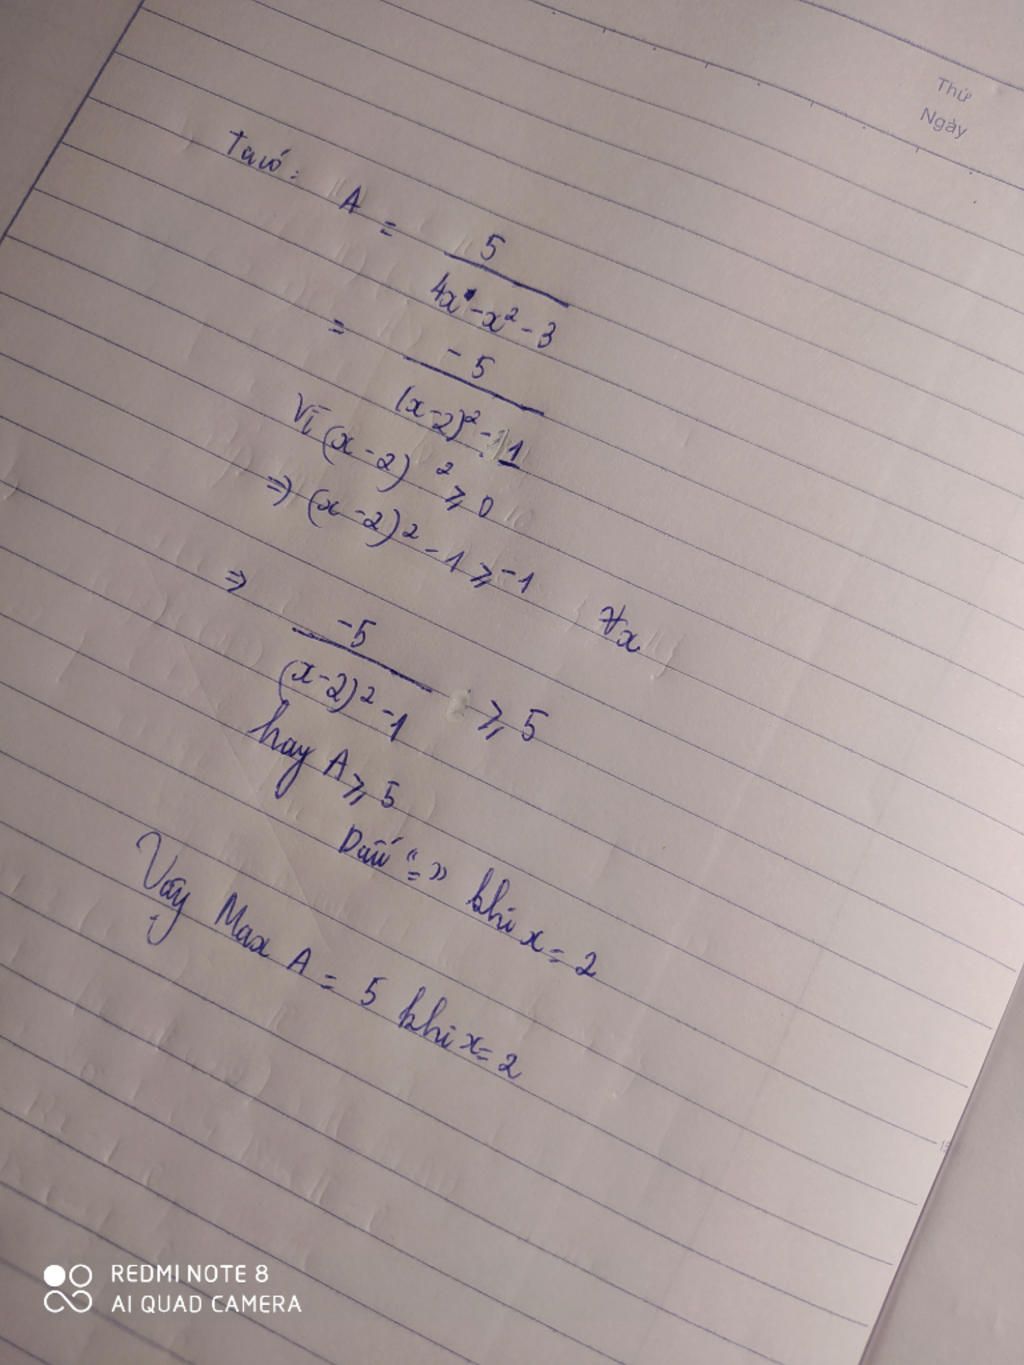 Thứ
Ngày
Ta có: A = 5 / (4x - x² - 3)
= -5 / ((x-2)² - 1)
Vì (x-2)² ≥ 0
⇒ (x-2)² - 1 ≥ -1 ∀x
⇒ -5 / ((x-2)² - 1) ≥ 5
hay A ≥ 5
Dấu "=" khi x = 2
Vậy Max A = 5 khi x = 2
REDMI NOTE 8
AI QUAD CAMERA